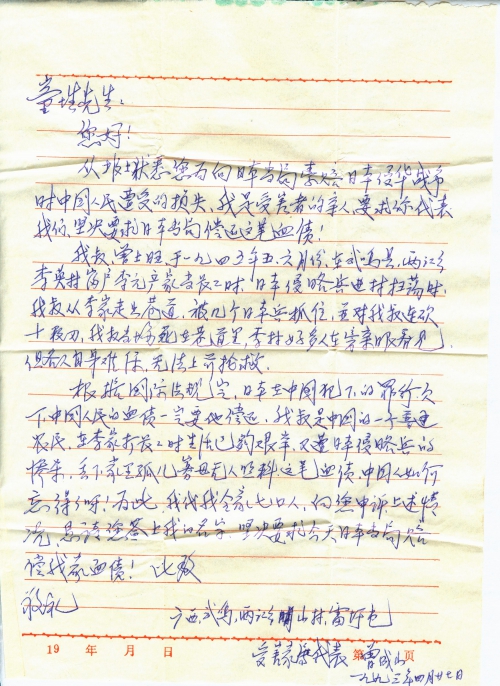 童增先生：
您好！
从报上获悉您为向日本当局索赔日本侵华战争
时中国人民遭受的损失，我是受害者的亲人要求你代表
我们，坚决要求日本当局偿还这笔血债！
我叔，曾上旺于一九四五年五、六月份，在武鸣县，两江公
李英村富户李元产家当长工时，日本侵略兵进村扫荡时，
我叔从李家走出巷道，被几个日本兵抓住，并对我叔连砍
十段刀，我叔当场死在巷道里，李村好多人在亲眼看见，
但各人自身难保，无法上前抢救。
根据国际法规定，日本在中国犯下的罪行欠
下中国人民的血债一定要他偿还，我叔是中国的一个普通
农民，在李家打长工时生活已够艰辛，又遭日本侵略兵的
惨杀，丢下家里孤儿寡母无人照料这笔血债，中国人如何
忘得了呀！为此，我代我全家七口人，向您申诉上述情
况，恳请您签上我的名字，坚决要求今天日本当局赔
偿我家血债！ 此致
敬礼
广西，武鸣，两江公 山村，富圩屯
受害家属代表 曾成山
一九九三年四月廿七日
19 年 月 日 页